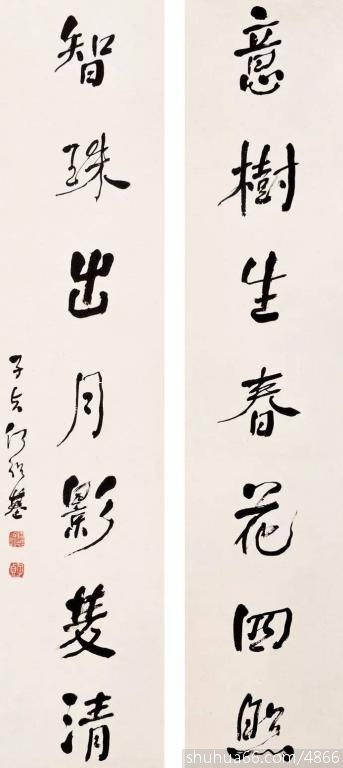 意樹生春花四照
智珠出月影雙清
子貞何紹基
shuhua66.com/4866